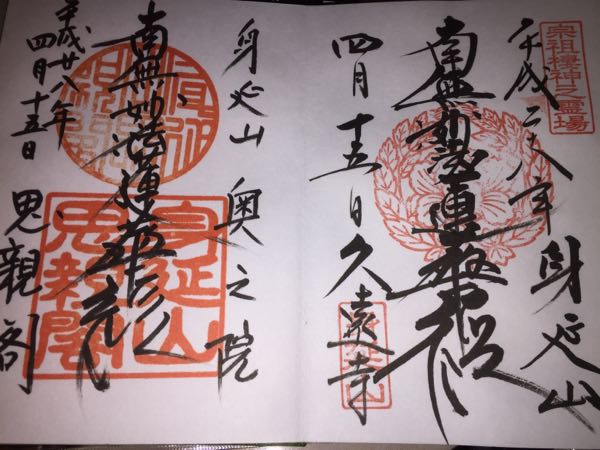 宗祖棲神之霊場
平成二八年
身延山
南無妙法蓮華経
四月十五日
久遠寺
身延山
奥之院
南無妙法蓮華経
身延山
思親閣
平成廿八年
四月十五日
思親閣